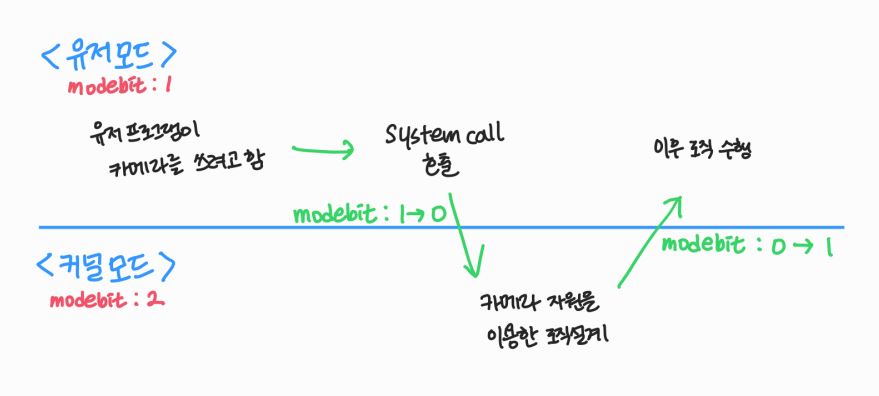 <유저모드>
modebit : 1
유저 프로그램이
카메라를 쓰려고 함
System call
호출
이후 로직 수행
modebit : 1→0
modebit : 0 → 1
<커널모드>
modebit : 2
카메라 자원을
이용한 로직설계